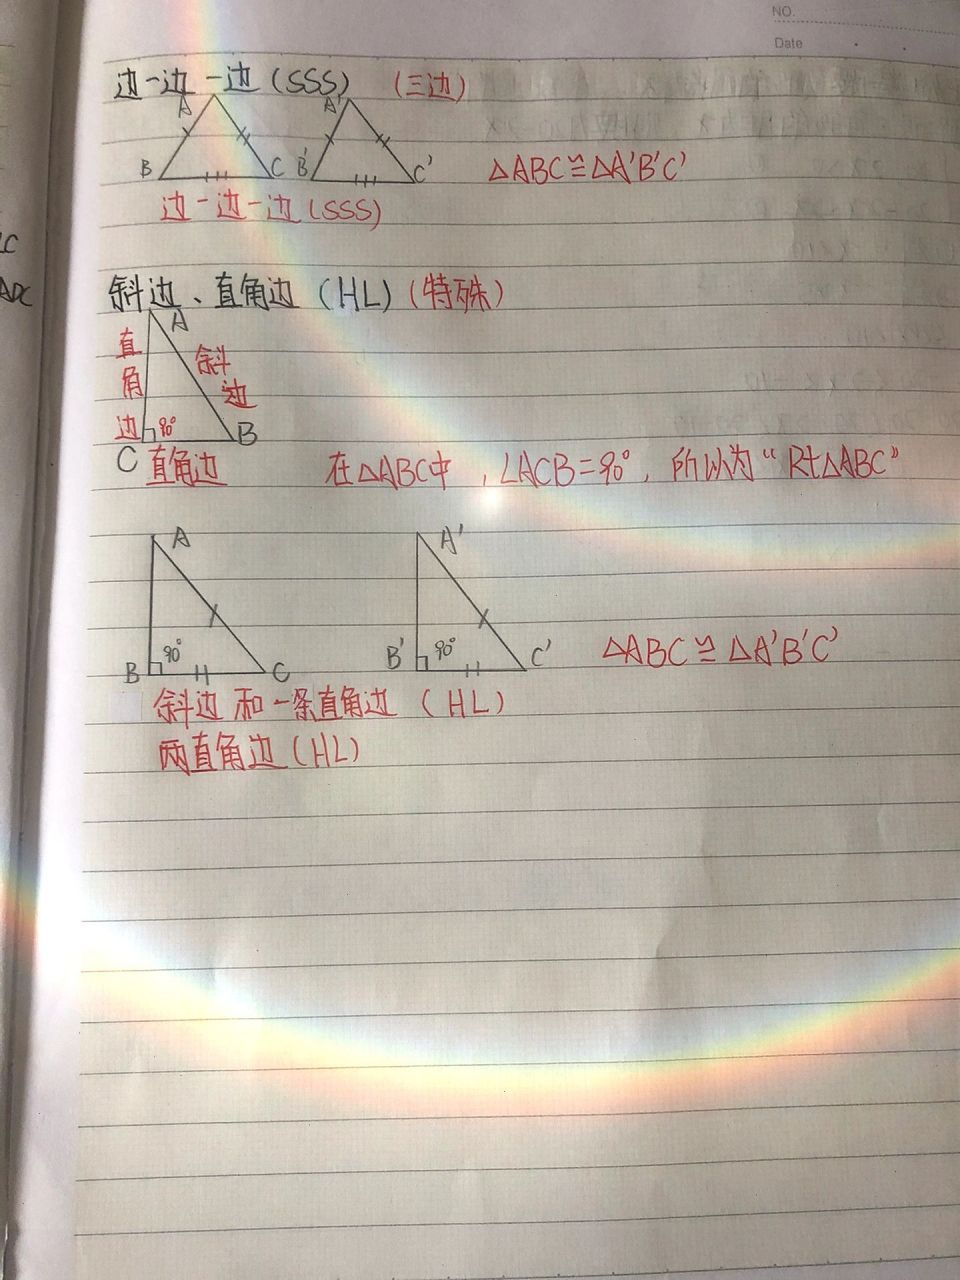 NO.
Date
边-边-边(SSS) (三边)
A A'
B C B' C' △ABC≌△A'B'C'
边-边-边(SSS)
斜边、直角边(HL)(特殊)
A
直角边 斜边
90° B
C 直角边 在△ABC中,∠ACB=90°,所以为“Rt△ABC”
A A'
90° 90°
B C B' C' △ABC≌△A'B'C'
斜边和一条直角边(HL)
两直角边(HL)
ADC